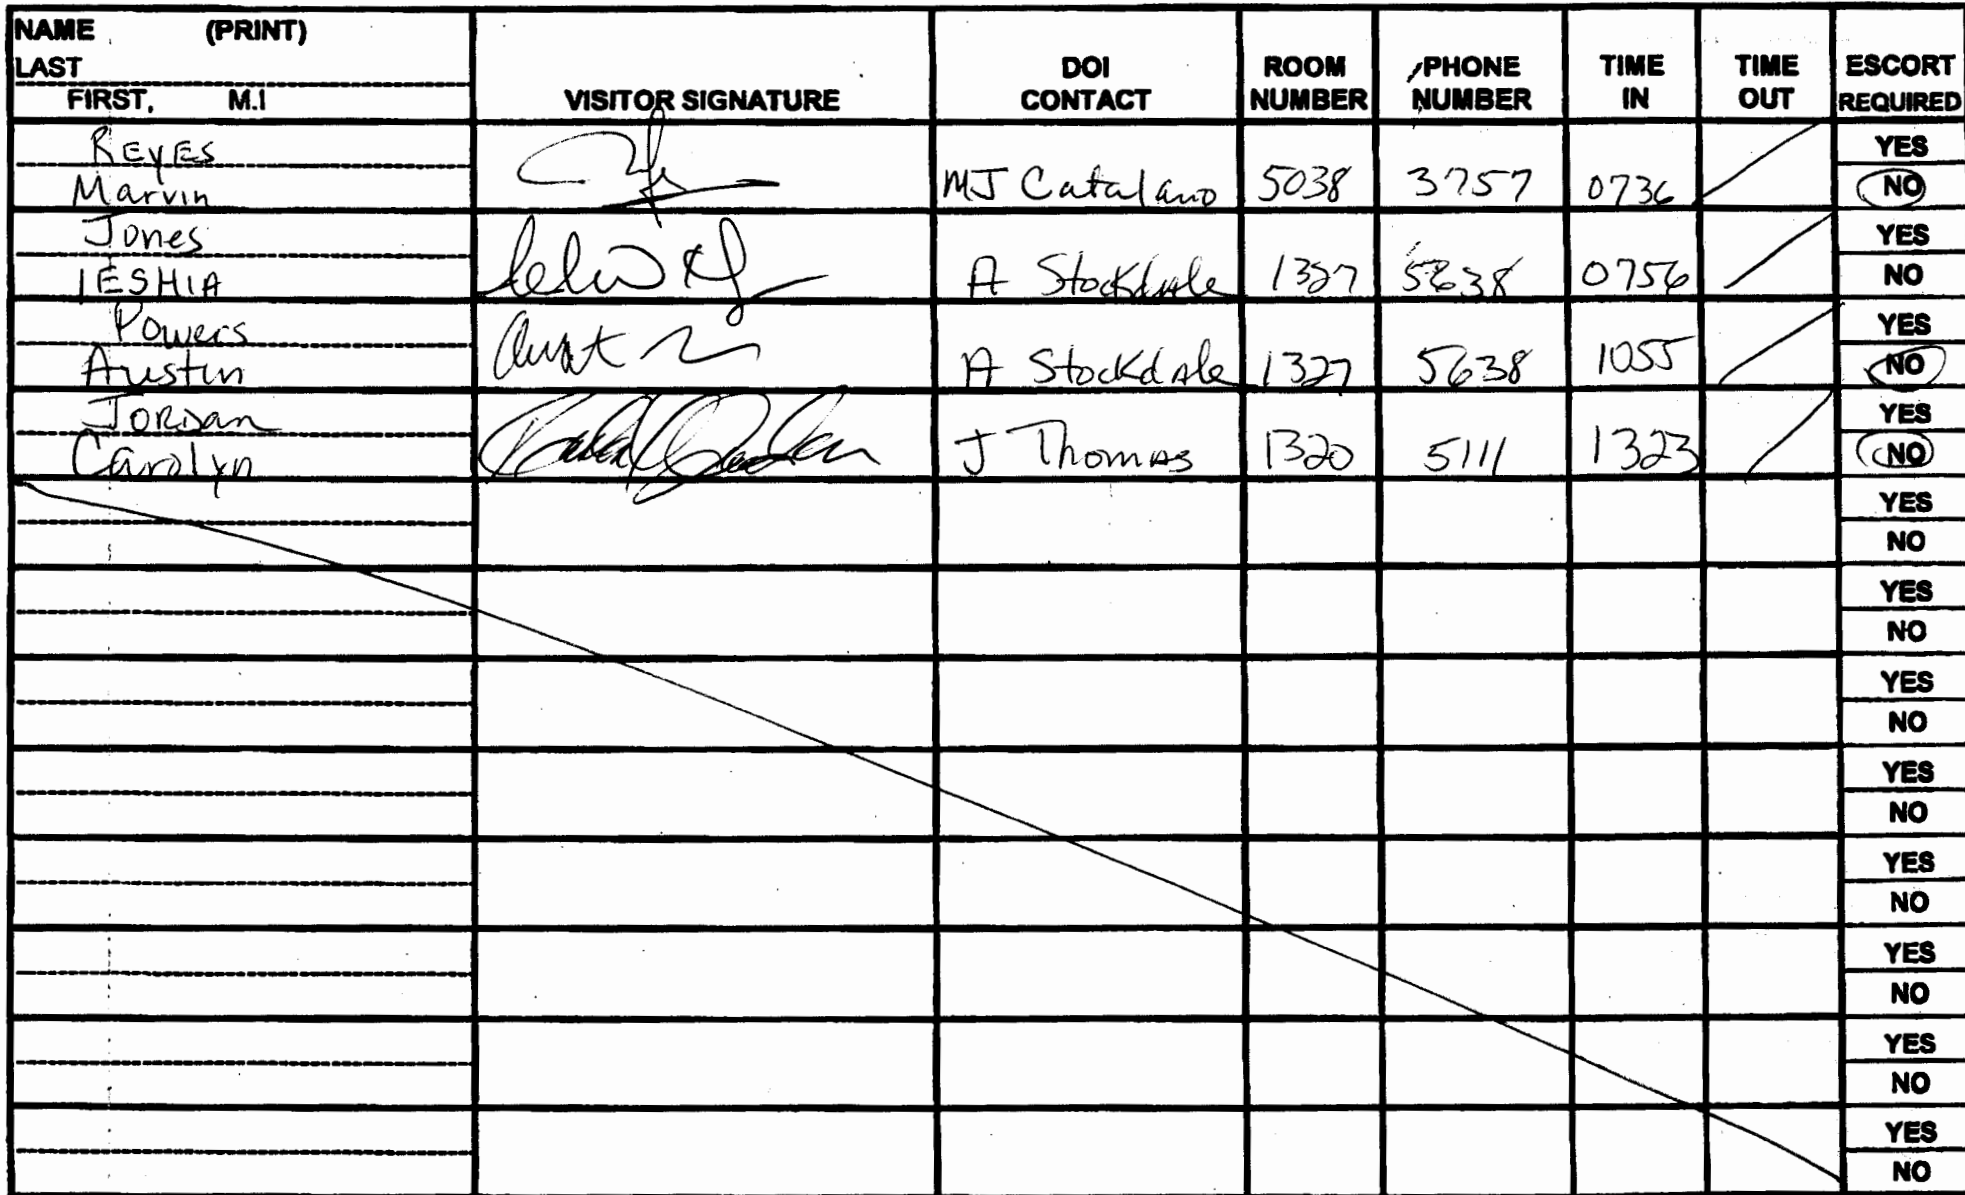 NAME (PRINT)
LAST
FIRST, M.I
VISITOR SIGNATURE
DOI
CONTACT
ROOM
NUMBER
PHONE
NUMBER
TIME
IN
TIME
OUT
ESCORT
REQUIRED
REYES
Marvin
MJ Catalano 5038 3757 0736
YES
NO
Jones
IESHIA
A Stockdale 1327 5638 0756
YES
NO
Powers
Austin
A Stockdale 1327 5638 1055
YES
NO
JORDan
Carolyn
J Thomas 1320 5111 1323
YES
NO
YES
NO
YES
NO
YES
NO
YES
NO
YES
NO
YES
NO
YES
NO
YES
NO